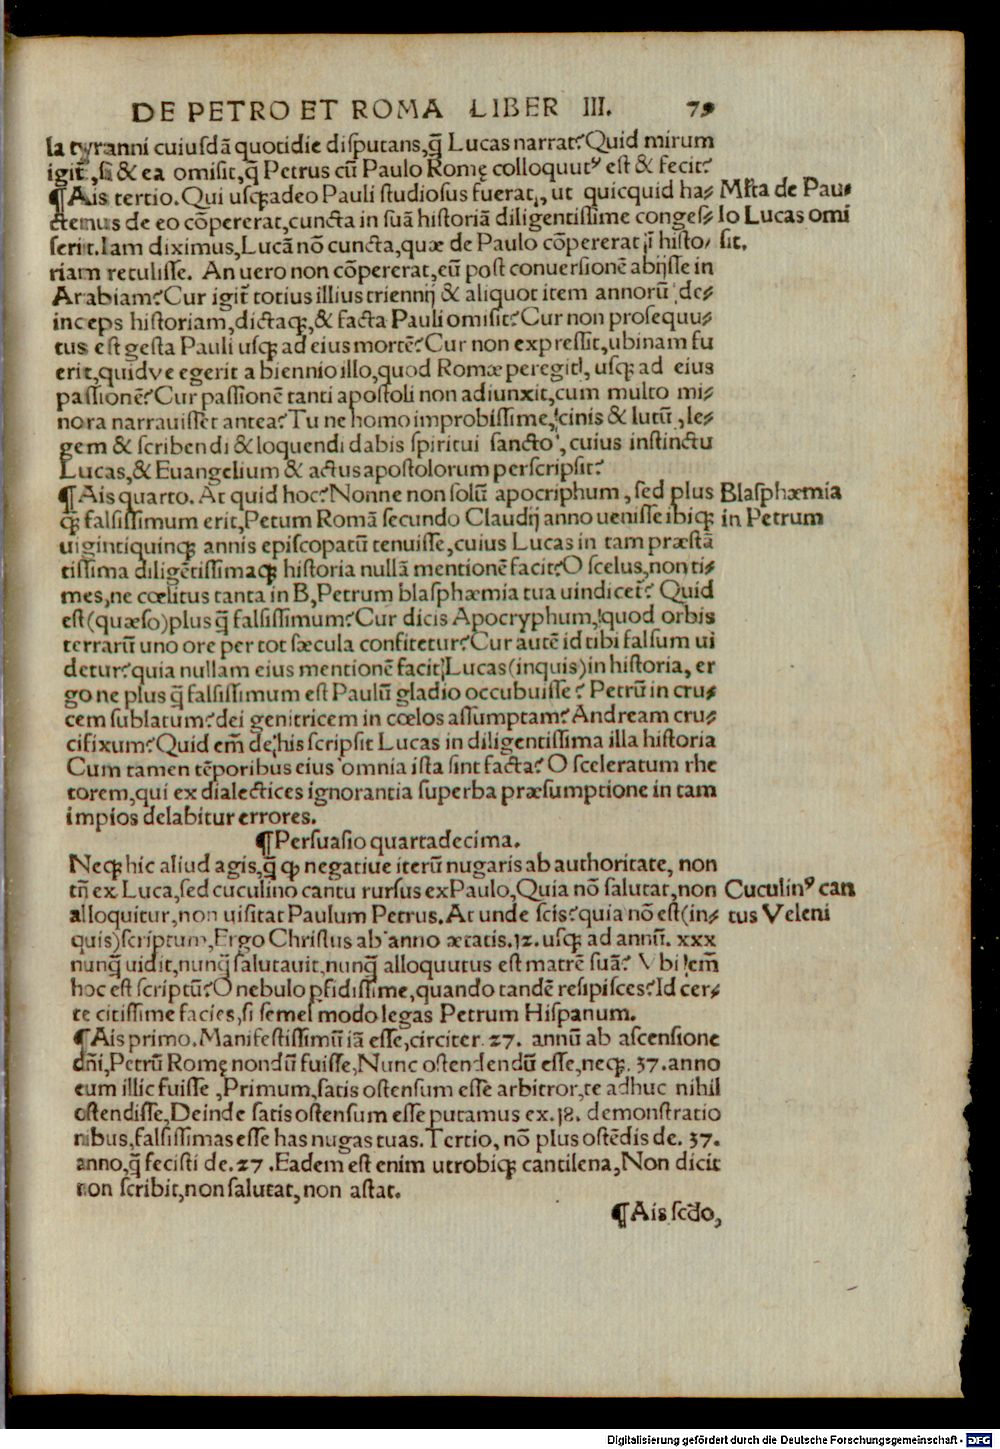 DE PETRO ET ROMA LIBER III. 79
la tyranni cuiusdā quotidie disputans,q̄ Lucas narrat? Quid mirum
igit̄,si & ea omisit,q̄ Petrus cū Paulo Romę colloquut⁹ est & fecit?
¶Ais tertio. Qui usq̨adeo Pauli studiosus fuerat, ut quicquid ha⸗
ctenus de eo cōpererat,cuncta in suā historiā diligentissime conges⸗
serit. Iam diximus,Lucā nō cuncta,quæ de Paulo cōpererat ī histo⸗
riam retulisse. An uero non cōpererat,eū post conuersionē abijsse in
Arabiam? Cur igit̄ totius illius triennij & aliquot item annorū de⸗
inceps historiam,dictaq̨,& facta Pauli omisit? Cur non prosequu⸗
tus est gesta Pauli usq̨ ad eius mortē? Cur non expressit,ubinam fu
erit,quidve egerit a biennio illo,quod Romæ peregit, usq̨ ad eius
passionē? Cur passionē tanti apostoli non adiunxit,cum multo mi⸗
nora narrauisset antea? Tu ne homo improbissime, cinis & lutū ,le⸗
gem & scribendi & loquendi dabis spiritui sancto , cuius instinctu
Lucas,& Euangelium & actus apostolorum perscripsit?
¶Ais quarto. At quid hoc? Nonne non solū apocriphum , sed plus
q̨ falsissimum erit,Petum Romā secundo Claudij anno uenisse ibiq̨
uigintiquinq̨ annis episcopatū tenuisse,cuius Lucas in tam præstā
tissima diligētissimaq̨ historia nullā mentionē facit? O scelus,non ti⸗
mes,ne cœlitus tanta in B,Petrum blasphæmia tua uindicet̄? Quid
est(quæso)plus q̄ falsissimum? Cur dicis Apocryphum, quod orbis
terrarū uno ore per tot sæcula confitetur? Cur autē id tibi falsum ui
detur? quia nullam eius mentionē facit Lucas(inquis)in historia, er
go ne plus q̄ falsissimum est Paulū gladio occubuisse? Petrū in cru⸗
cem sublatum? dei genitricem in cœlos assumptam? Andream cru⸗
cifixum? Quid em̄ de his scripsit Lucas in diligentissima illa historia
Cum tamen tēporibus eius omnia ista sint facta? O sceleratum rhe
torem,qui ex dialectices ignorantia superba præsumptione in tam
impios delabitur errores.
¶Persuasio quartadecima.
Neq̨ hic aliud agis,q̄ q̨ negatiue iterū nugaris ab authoritate, non
tn̄ ex Luca,sed cuculino cantu rursus ex Paulo,Quia nō salutat,non
alloquitur,non uisitat Paulum Petrus. At unde scis? quia nō est(in⸗
quis)scriptum,Ergo Christus ab anno ætatis.12. usq̨ ad annū. xxx
nunq̄ uidit,nunq̄ salutauit,nunq̄ alloquutus est matrē suā? Vbi em̄
hoc est scriptū? O nebulo ꝑfidissime,quando tandē resipisces? Id cer⸗
te citissime facies,si semel modo legas Petrum Hispanum.
¶Ais primo. Manifestissimū iā esse,circiter. 27. annū ab ascensione
dn̄i,Petrū Romę nondū fuisse,Nunc ostendendū esse,neq̨. 37.anno
eum illic fuisse ,Primum,satis ostensum esse arbitror,te adhuc nihil
ostendisse,Deinde satis ostensum esse putamus ex.18. demonstratio
nibus,falsissimas esse has nugas tuas. Tertio, nō plus ostēdis de. 37.
anno,q̄ fecisti de.27 .Eadem est enim utrobiq̨ cantilena,Non dicit
non scribit,non salutat, non astat.
¶Ais scd̄o,
Ml̄ta de Pau⸗
lo Lucas omi
sit.
Blasphæmia
in Petrum
Cuculin⁹ can
tus Veleni
Digitalisierung gefördert durch die Deutsche Forschungsgemeinschaft - DFG